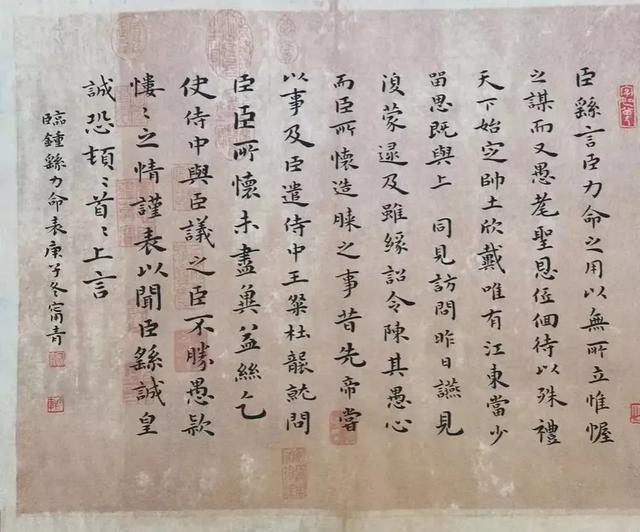 臣繇言臣力命之用以無所立惟幄
之謀而又愚耄聖恩低佪待以殊禮
天下始定帥土欣戴唯有江東當少
留思既與上同見訪問昨日讌見
復蒙逮及雖緣詔令陳其愚心
而臣所懷造膝之事昔先帝嘗
以事及臣遣侍中王粲杜襲就問
臣臣所懷未盡冀益絲乞
使侍中與臣議之臣不勝愚款
慺〻之情謹表以聞臣繇誠皇
誠恐頓〻首〻上言
臨鍾繇力命表庚子冬甯青